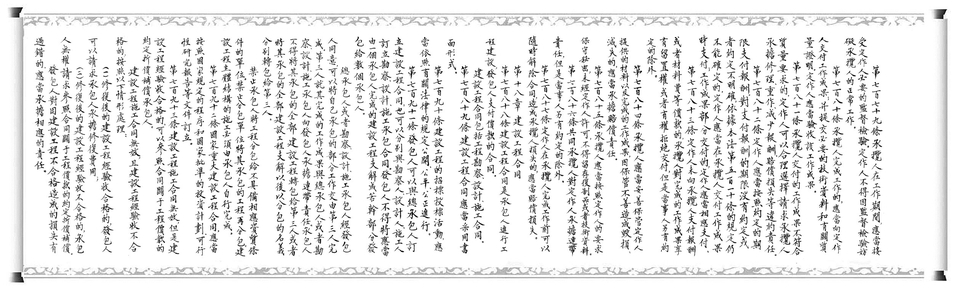 第七百七十九條 承攬人在工作期間，應當接
受定作人必要的監督檢驗。定作人不得因監督檢驗妨
礙承攬人的正常工作。
第七百八十條 承攬人完成工作的，應當向定作
人交付工作成果，并提交必要的技術資料和有關質
量證明。定作人應當驗收該工作成果。
第七百八十一條 承攬人交付的工作成果不符合
質量要求的，定作人可以合理選擇請求承攬人
承擔修理、重作、減少報酬、賠償損失等違約責任。
第七百八十二條 定作人應當按照約定的期
限支付報酬。對支付報酬的期限沒有約定或
者約定不明確，依據本法第五百一十條的規定仍
不能確定的，定作人應當在承攬人交付工作成果
時支付；工作成果部分交付的，定作人應當相應支付。
第七百八十三條 定作人未向承攬人支付報酬
或者材料費等價款的，承攬人對完成的工作成果享
有留置權或者有權拒絕交付，但是當事人另有約
定的除外。
第七百八十四條 承攬人應當妥善保管定作人
提供的材料以及完成的工作成果，因保管不善造成毀損、
滅失的，應當承擔賠償責任。
第七百八十五條 承攬人應當按照定作人的要求
保守秘密，未經定作人許可，不得留存復製品或者技術資料。
第七百八十六條 共同承攬人對定作人承擔連帶
責任，但是當事人另有約定的除外。
第七百八十七條 定作人在承攬人完成工作前可以
隨時解除合同，造成承攬人損失的，應當賠償損失。
第十八章 建設工程合同
第七百八十八條 建設工程合同是承包人進行工
程建設，發包人支付價款的合同。
建設工程合同包括工程勘察、設計、施工合同。
第七百八十九條 建設工程合同應當采用書
面形式。
第七百九十條 建設工程的招標投標活動，應
當依照有關法律的規定公開、公平、公正進行。
第七百九十一條 發包人可以與總承包人訂
立建設工程合同，也可以分別與勘察人、設計人、施工人
訂立勘察、設計、施工承包合同。發包人不得將應當
由一個承包人完成的建設工程支解成若干部分發
包給數個承包人。
總承包人或者勘察、設計、施工承包人經發包
人同意，可以將自己承包的部分工作交由第三人完
成。第三人就其完成的工作成果與總承包人或者勘
察、設計、施工承包人向發包人承擔連帶責任。承包人
不得將其承包的全部建設工程轉包給第三人或者
將其承包的全部建設工程支解以後以分包的名義
分別轉包給第三人。
禁止承包人將工程分包給不具備相應資質條
件的單位。禁止分包單位將其承包的工程再分包。建
設工程主體結構的施工必須由承包人自行完成。
第七百九十二條 國家重大建設工程合同，應當
按照國家規定的程序和國家批準的投資計劃、可行
性研究報告等文件訂立。
第七百九十三條 建設工程施工合同無效，但是建
設工程經驗收合格的，可以參照合同關于工程價款的
約定折價補償承包人。
建設工程施工合同無效，且建設工程經驗收不合
格的，按照以下情形處理：
（一）修復後的建設工程經驗收合格的，發包人
可以請求承包人承擔修復費用；
（二）修復後的建設工程經驗收不合格的，承包
人無權請求參照合同關于工程價款的約定折價補償。
發包人對因建設工程不合格造成的損失有
過錯的，應當承擔相應的責任。